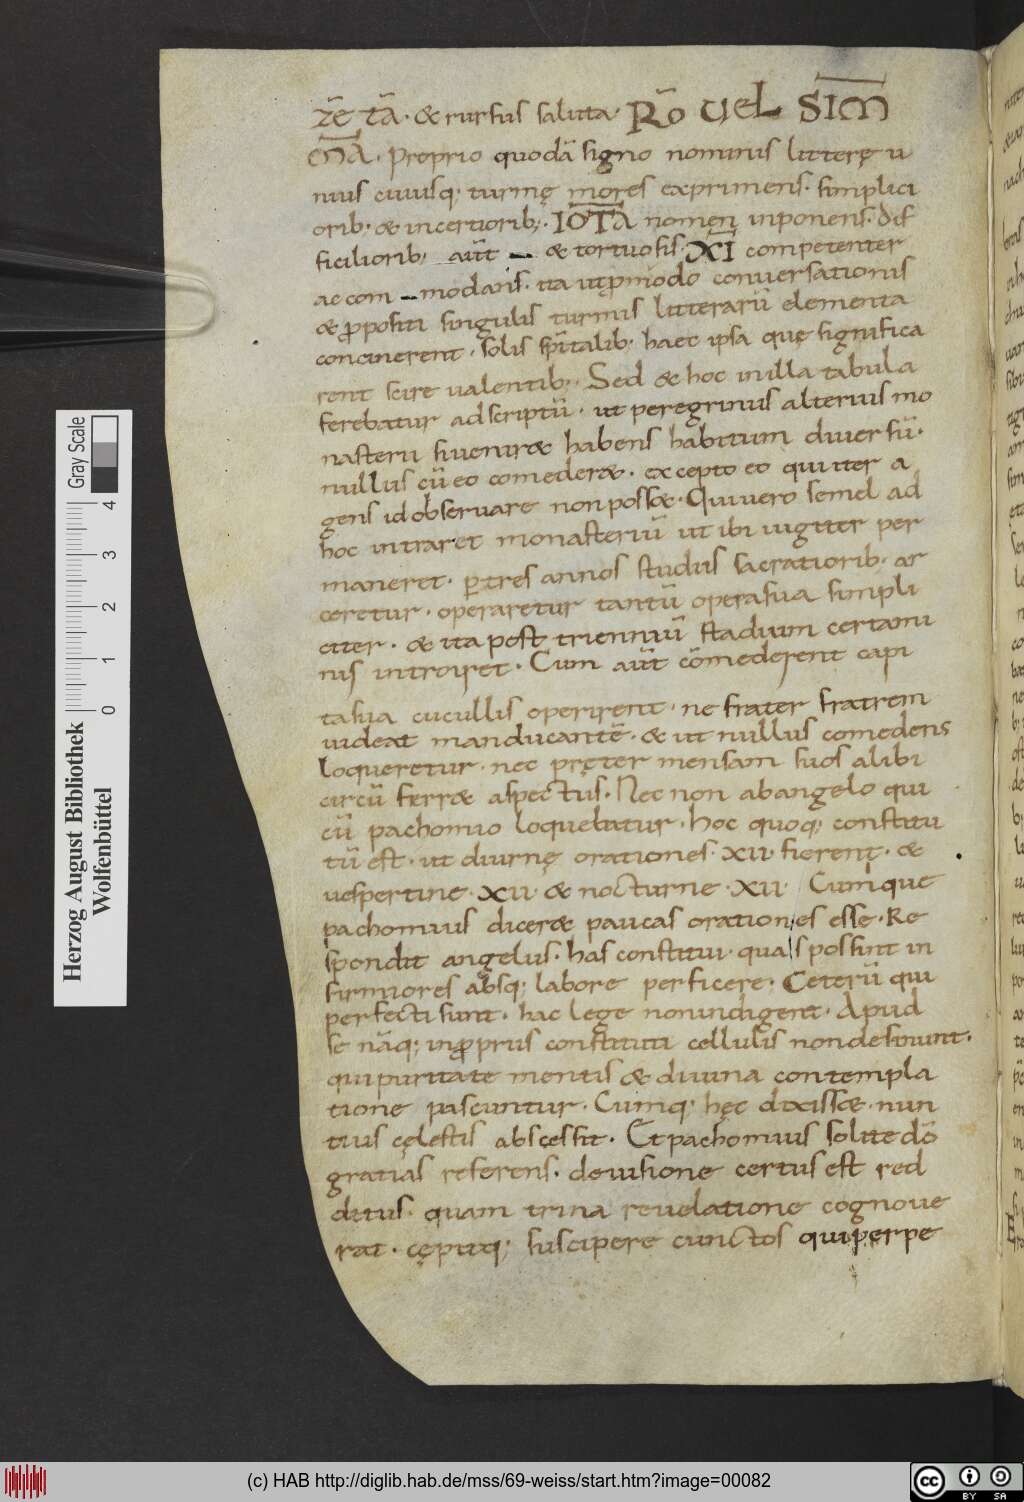 zē tā · & rursus saluta · Rō UEL SIM
MA · Proprio quodā signo nominis litterę u
nius cuiusq; turmę mores exprimens · simplici
orib; & incertiorib; · IOTA nomen inponens · dif
ficiliorib; aūt & tortuosis · XI competenter
accommodans · ita ut pmodo conuersationis
& ppositi singulis turmis litterarū elementa
concinerent · solis spitalib; haec ipsa quę significa
rent scire ualentib; · Sed & hoc in illa tabula
ferebatur adscriptū · ut peregrinus alterius mo
nasterii si uenir& habens habitum diuersū ·
nullus cū eo comeder& · excepto eo qui iter a
gens id obseruare non poss& · Qui uero semel ad
hoc intraret monasteriū ut ibi iugiter per
maneret · p tres annos studiis sacratiorib; ar
ceretur · operaretur tantū opera sua simpli
citer · & ita post trienniū stadium certami
nis introiret · Cum aūt cōmederent capi
ta sua cucullis operirent · ne frater fratrem
uideat manducantē · & ut nullus comedens
loqueretur · nec pręter mensam suos alibi
circū ferr& aspectus · Nec non ab angelo qui
cū pachomio loquebatur · hoc quoq; constitu
tū est · ut diurnę orationes · XII · fierent · &
uespertine · XII · & nocturne · XII · Cumque
pachomius dicer& paucas orationes esse · Re
spondit angelus · has constitui · quas possint in
firmiores absq; labore perficere · Ceterū qui
perfecti sunt · hac lege non indigent · Apud
se nāq; in pprus constituti cellulis non desinunt ·
qui puritate mentis & diuina contempla
tione pascuntur · Cumq; hęc dixiss& · nun
tius cęlestis abscessit · Et pachomius solite dō
gratias referens · de uisione certus est red
ditus · quam trina reuelatione cognoue
rat · cępitq; suscipere cunctos qui perpe
Herzog August Bibliothek
Wolfenbüttel
0 1 2 3 4
Gray Scale
(c) HAB http://diglib.hab.de/mss/69-weiss/start.htm?image=00082
cc BY SA